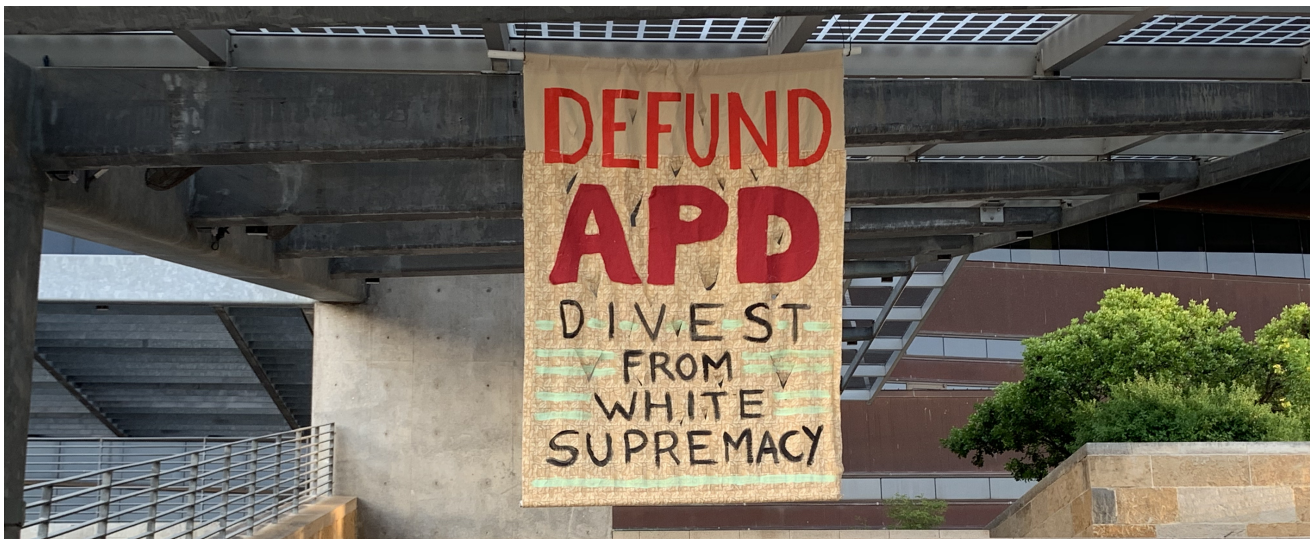 DEFUND
APD
DIVEST
FROM
WHITE
SUPREMACY